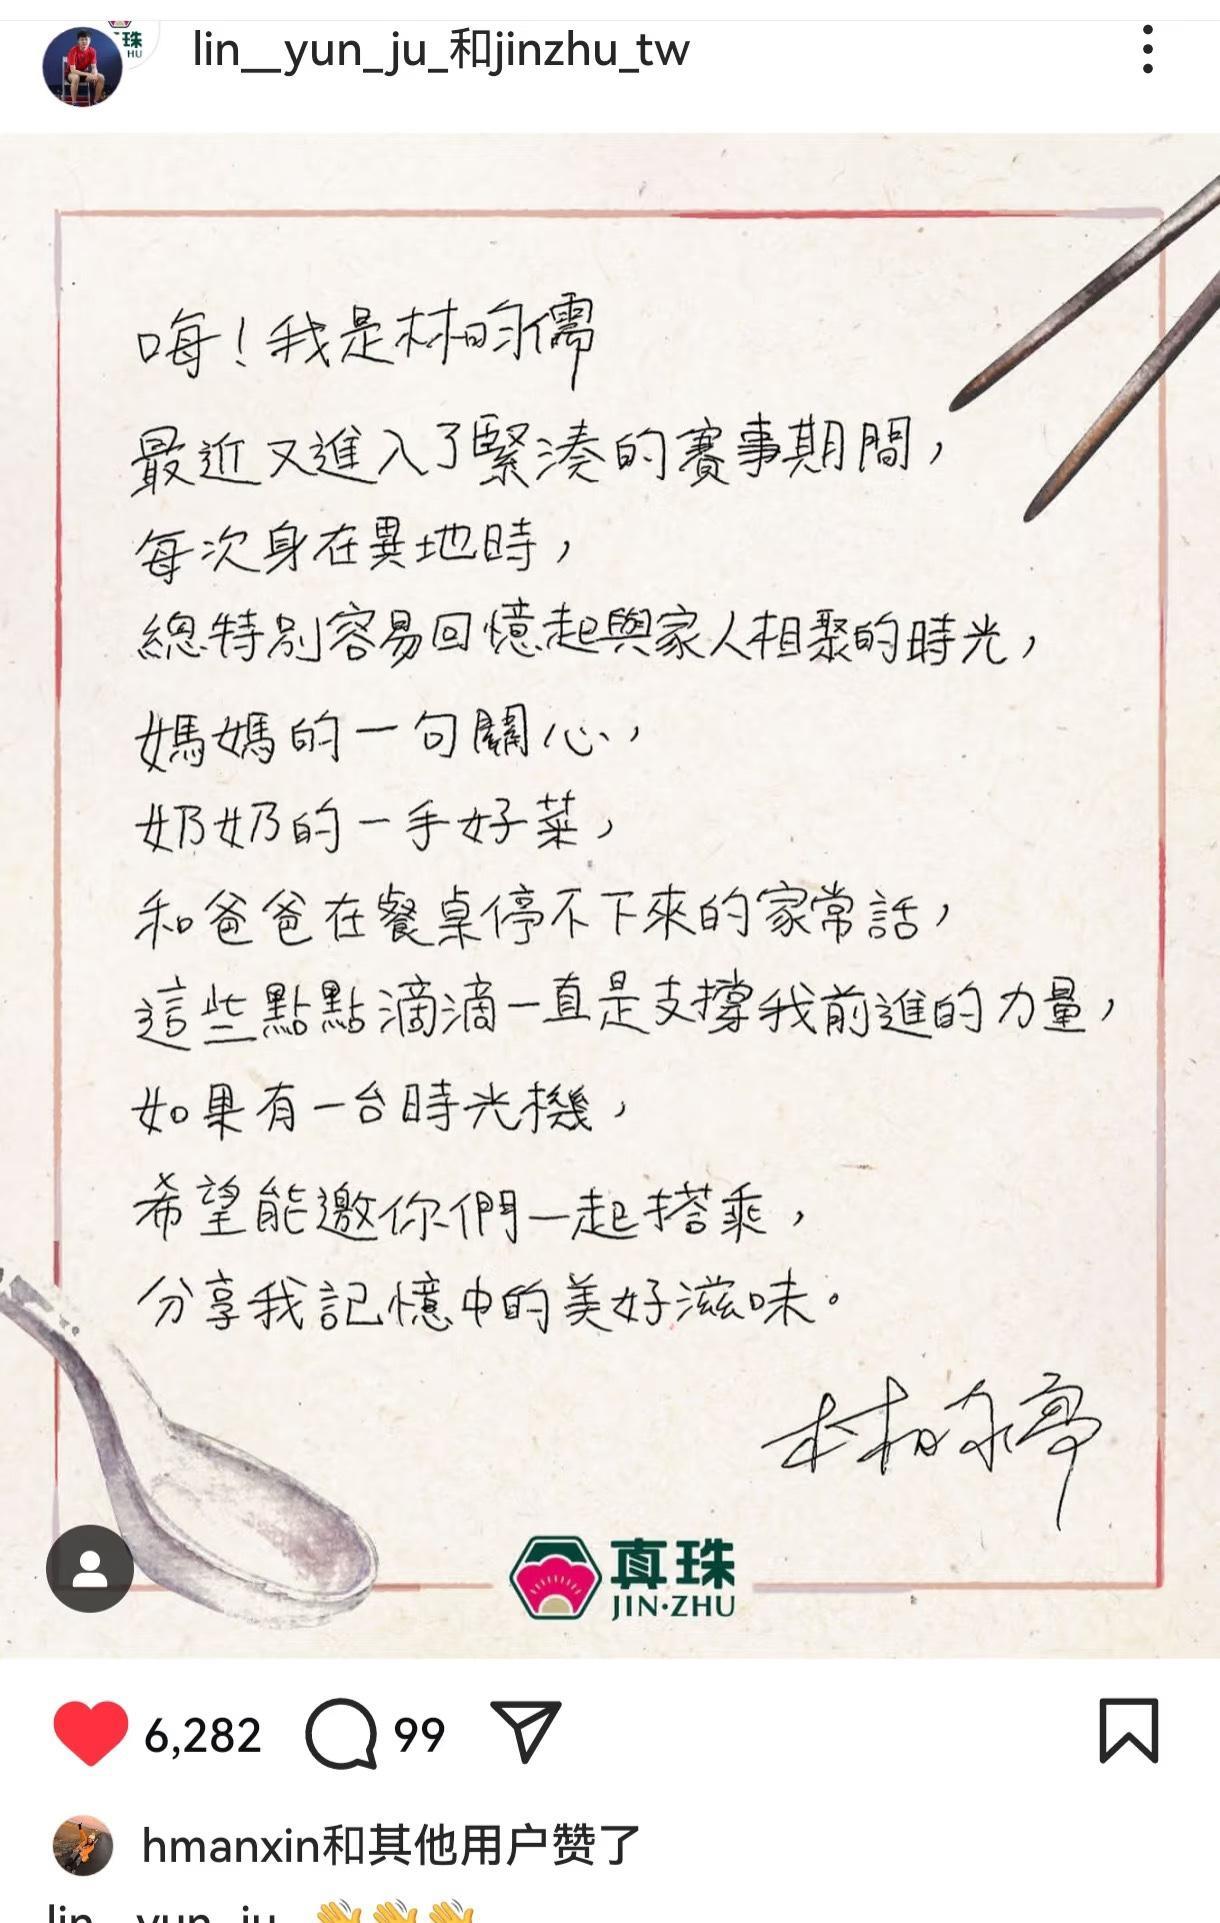 珠
HU
lin__yun_ju_和jinzhu_tw
嗨!我是林昀儒
最近又進入了緊湊的賽事期間,
每次身在異地時,
總特別容易回憶起與家人相聚的時光,
媽媽的一句關心,
奶奶的一手好菜,
和爸爸在餐桌停不下來的家常話,
這些點點滴滴一直是支撐我前進的力量,
如果有一台時光機,
希望能邀你們一起搭乘,
分享我記憶中的美好滋味。
林昀儒
真珠
JIN·ZHU
6,282
99
hmanxin和其他用户赞了
lin__yun_ju_ 👋👋👋